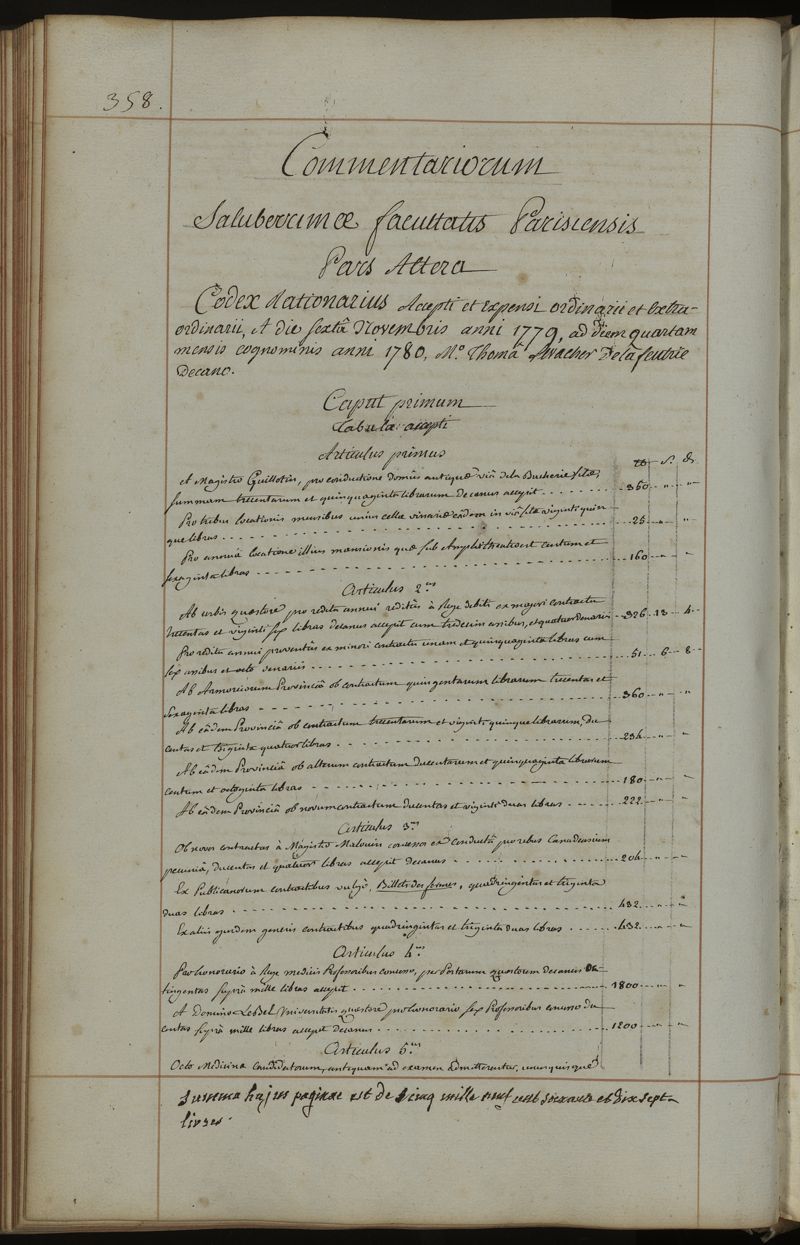 358.
Commentariorum
Saluberrimæ facultatis Parisiensis
Pars Altera
Codex Rationarius Accepti et Expensi ordinarii et Extra-
ordinarii, A die sextâ Novembris anni 1779, ad Diem quartam
mensis cognominis anni 1780, M.º Thomâ Levacher Delafeutrie
Decano.
Caput primum
Tabula accepti
Articulus primus
tt s. d.
A Magistro Guillotin, pro conductione domûs antiquæ viâ dela Bucherie sitæ,
summam trecentarum et quinquaginta librarum decanus accepit . . . 350 " "
Pro tribus locationis mensibus unius cellæ vinariæ eâdem in viâ sitæ viginti quin
que libras . . . 25 " "
Pro annuâ locatione illius mansionis quæ sub Amphitheatro est centum et
sexaginta libras . . . 160 " "
Articulus 2.us
Ab urbis quæstore pro reditu annui reditûs à Rege debiti ex majori contractu
trecentas et viginti sex libras decanus accepit cum tredecim assibus, et quatuor denariis 326 13 4
Pro reditu annui proventûs ex minori contractu unam et quinquaginta libras cum
sex assibus et octo denariis . . . 51 6 8
Ab Armoricorum Provinciâ ob contractum quingentarum librarum trecentas et
sexaginta libras . . . 360 " "
Ab eâdem Provinciâ ob contractum trecentarum et viginti quinque librarum, du
centas et triginta quatuor libras . . . 234 " "
Ab eâdem Provinciâ ob alterum contractum ducentarum et quinquaginta librarum
centum et octoginta libras . . . 180 " "
Ab eâdem Provinciâ ob novum contractum ducentas et viginti duas libras . . . 222 " "
Articulus 3.us
Ob novos contractus à Magistro Malouin concessos ex conductâ pro rebus Canadensium
pecuniâ, ducentas et quatuor libras accepit decanus . . . 204 " "
Ex Publicanorum contractibus vulgò, Billets des fermes, quadringintas et triginta
duas libras . . . 432 " "
Ex aliis ejusdem generis contractibus quadringintas et triginta duas libras . . . 432 " "
Articulus 4.us
Pro honorario à Rege medicis Professoribus concesso, per Portarum quæstorem decanus oc
tingentas suprà mille libras accepit . . . 1800 " "
A Domino LeBel Universitatis quæstore pro honorario sex Professoribus concesso du
centas suprà mille libras accepit decanus . . . 1200 " "
Articulus 5.us
Octo Medicinæ Candidatorum, antequam ad examen admitterentur, unusquisque
Summa hujus paginæ est de Cinq mille neuf cent soixante et dix sept
livres.